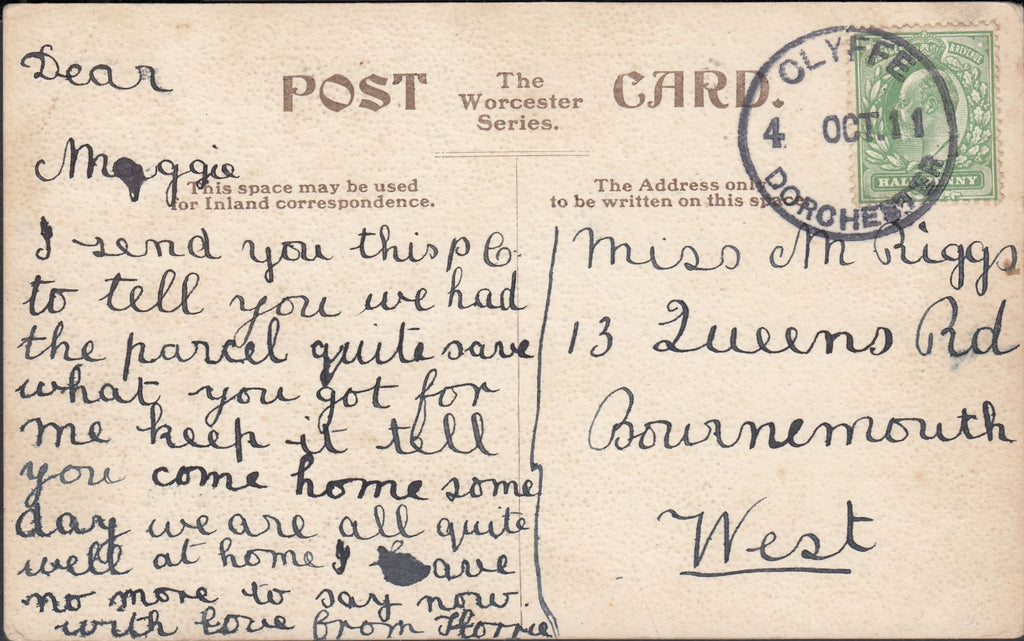 Dear
POST The Worcester Series. CARD.
CLYFFE
4 OCT. 11
DORCHESTER
& REVENUE
HALFPENNY
Maggie
This space may be used for Inland correspondence.
The Address only to be written on this space.
I send you this p C.
to tell you we had
the parcel quite save
what you got for
me keep it tell
you come home some
day we are all quite
well at home I have
no more to say now.
with love from Florrie
Miss M Riggs
13 Queens Rd
Bournemouth
West